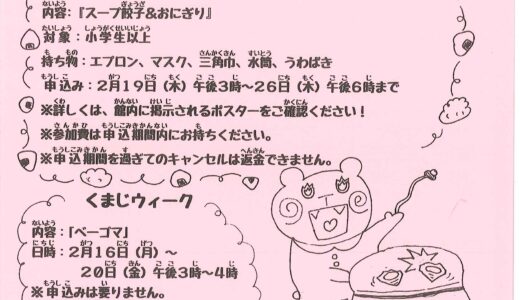 内容：『スープ餃子＆おにぎり』
対象：小学生以上
持ち物：エプロン、マスク、三角巾、水筒、うわばき
申込み：2月19日（木）午後3時～26日（木）午後6時まで
※詳しくは、館内に掲示されるポスターをご確認ください！
※参加費は申込期間内にお持ちください。
※申込期間を過ぎてのキャンセルは返金できません。
くまじウィーク
内容：「ベーゴマ」
日時：2月16日（月）～
20日（金）午後3時～4時
※申込みは要りません。